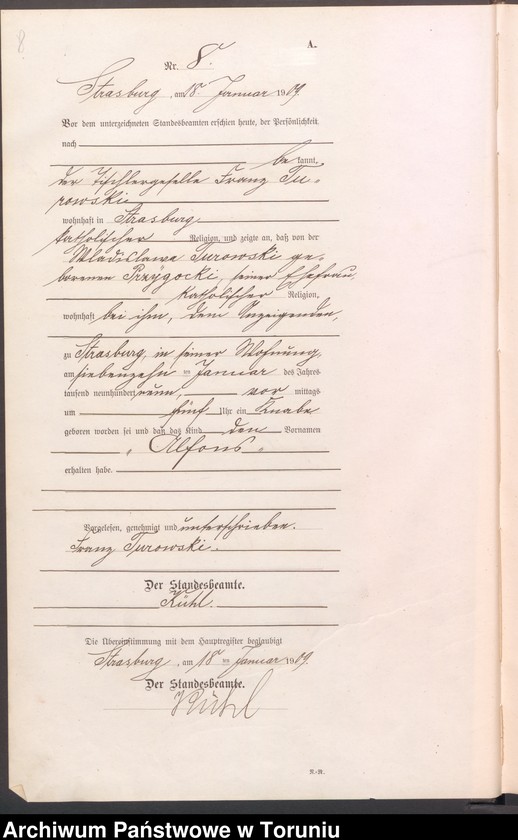 8
A.
Nr. 8
Strasburg, am 18. Januar 1909.
Vor dem unterzeichneten Standesbeamten erschien heute, der Persönlichkeit
nach
be kannt,
der Tischlergeselle Franz Tu-
rowski
wohnhaft in Strasburg
katholischer Religion, und zeigte an, daß von der
Wladislawa Turowski ge-
borenen Przygocki, seiner Ehefrau,
katholischer Religion,
wohnhaft bei ihm, dem Anzeigenden,
zu Strasburg, in seiner Wohnung,
am siebenzehn ten Januar des Jahres
tausend neunhundert neun, vor mittags
um fünf Uhr ein Knabe
geboren worden sei und daß das Kind den Vornamen
„Alfons“
erhalten habe.
Vorgelesen, genehmigt und unterschrieben.
Franz Turowski.
Der Standesbeamte.
Kühl.
Die Übereinstimmung mit dem Hauptregister beglaubigt
Strasburg, am 18 ten Januar 1909.
Der Standesbeamte.
Kühl
Archiwum Państwowe w Toruniu